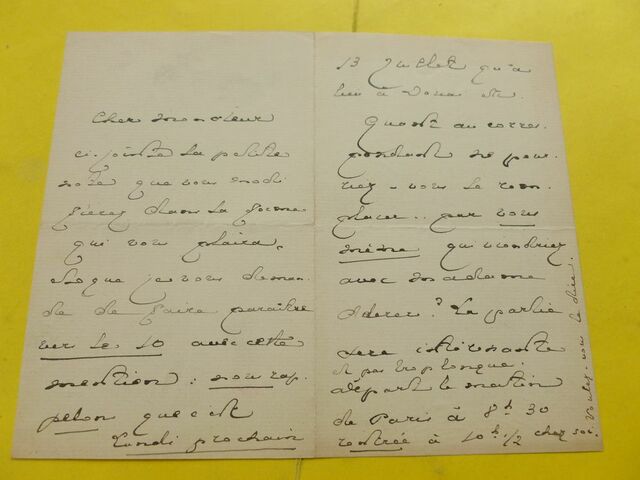 Cher Monsieur
ci-jointe la petite
note que vous modi
fierez dans la forme
qui vous plaira,
et que je vous deman-
de de faire paraître
vers le 10 avec cette
mention : nous rap-
pelons que c'est
Lundi prochain
13 Juillet qu'a
lieu à Douai etc.
Quant au corres-
pondant ne pour-
riez-vous le rem-
placer.. par vous
même qui viendriez
avec Madame
Aderer ? La partie
sera intéressante
et pas trop longue.
départ le matin
de Paris à 8h 30
rentrée à 10h 1/2 chez soi.
Voulez-vous le dire.